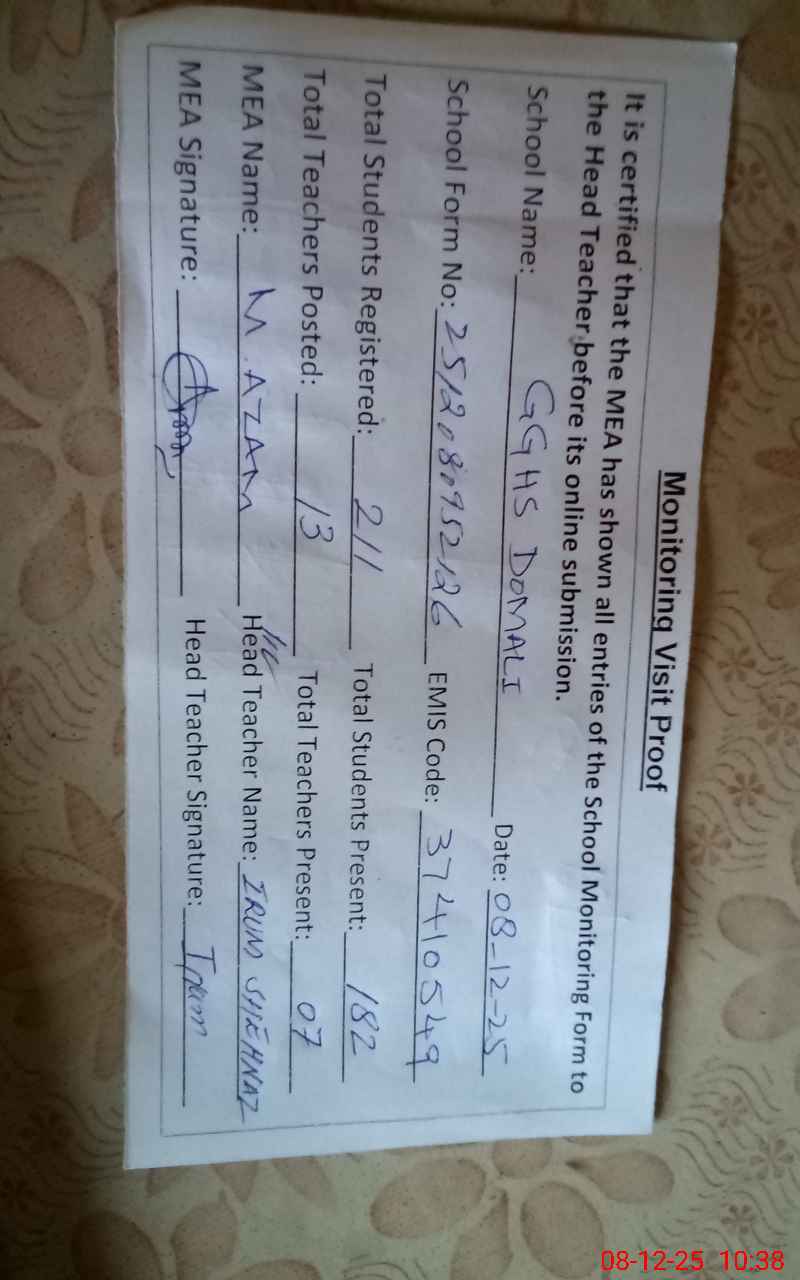 Monitoring Visit Proof
It is certified that the MEA has shown all entries of the School Monitoring Form to
the Head Teacher before its online submission.
School Name: GGHS DOMALI Date: 08-12-25
School Form No: 2512080952126 EMIS Code: 37410549
Total Students Registered: 211 Total Students Present: 182
Total Teachers Posted: 13 Total Teachers Present: 07
MEA Name: M. AZAM I/C Head Teacher Name: IRUM SHEHNAZ
MEA Signature: Head Teacher Signature: Irum
08-12-25 10:38